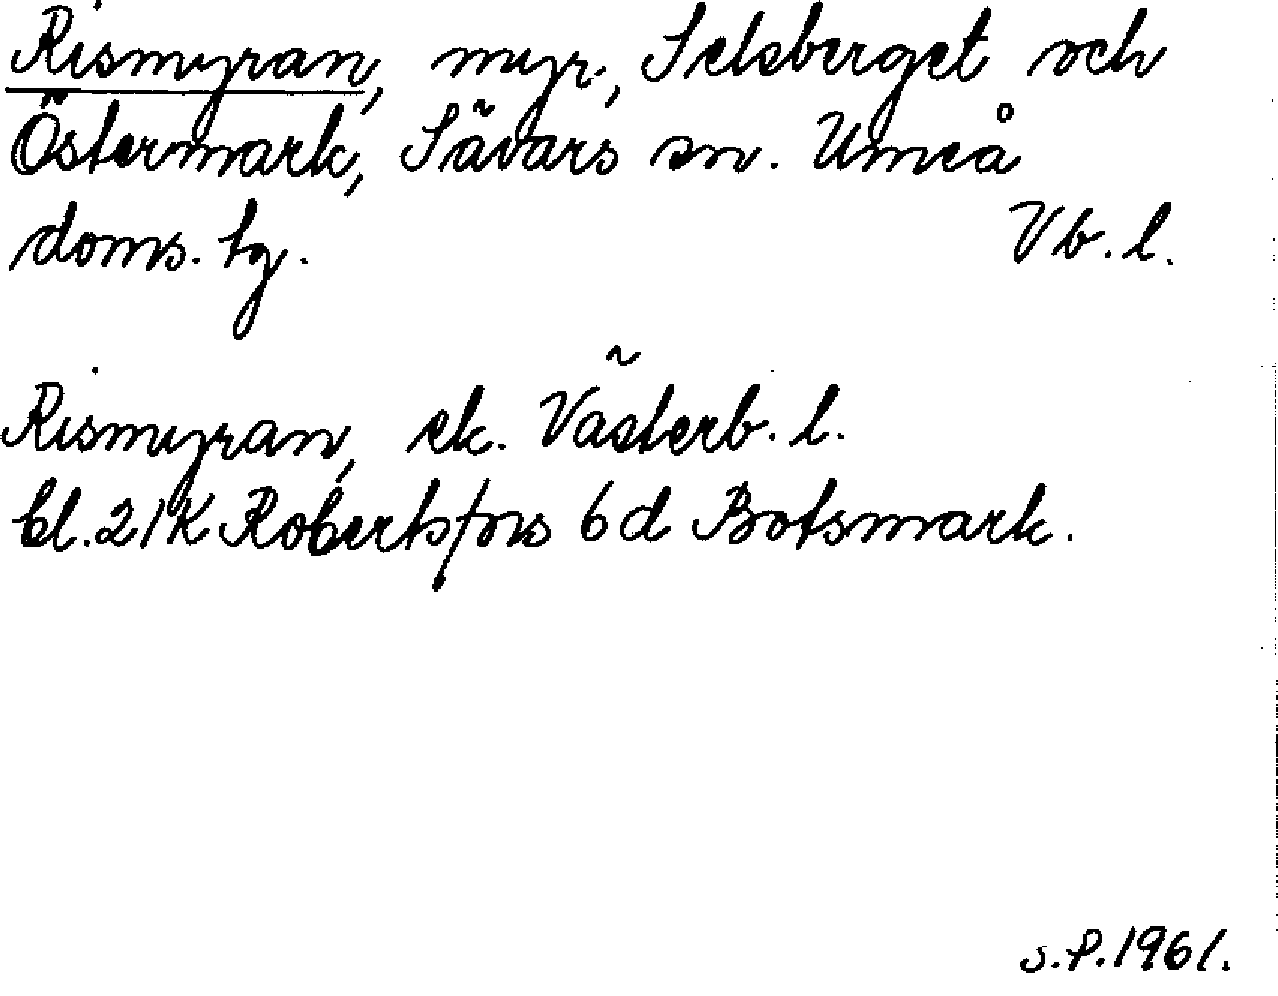 Rismyran, myr, Selsberget och
Östermark, Sävars sn. Umeå
doms. tg. Vb. l.
Rismyran, ek. Västerb. l.
bl. 21K Robertsfors 6d Botsmark.
s.P. 1961.